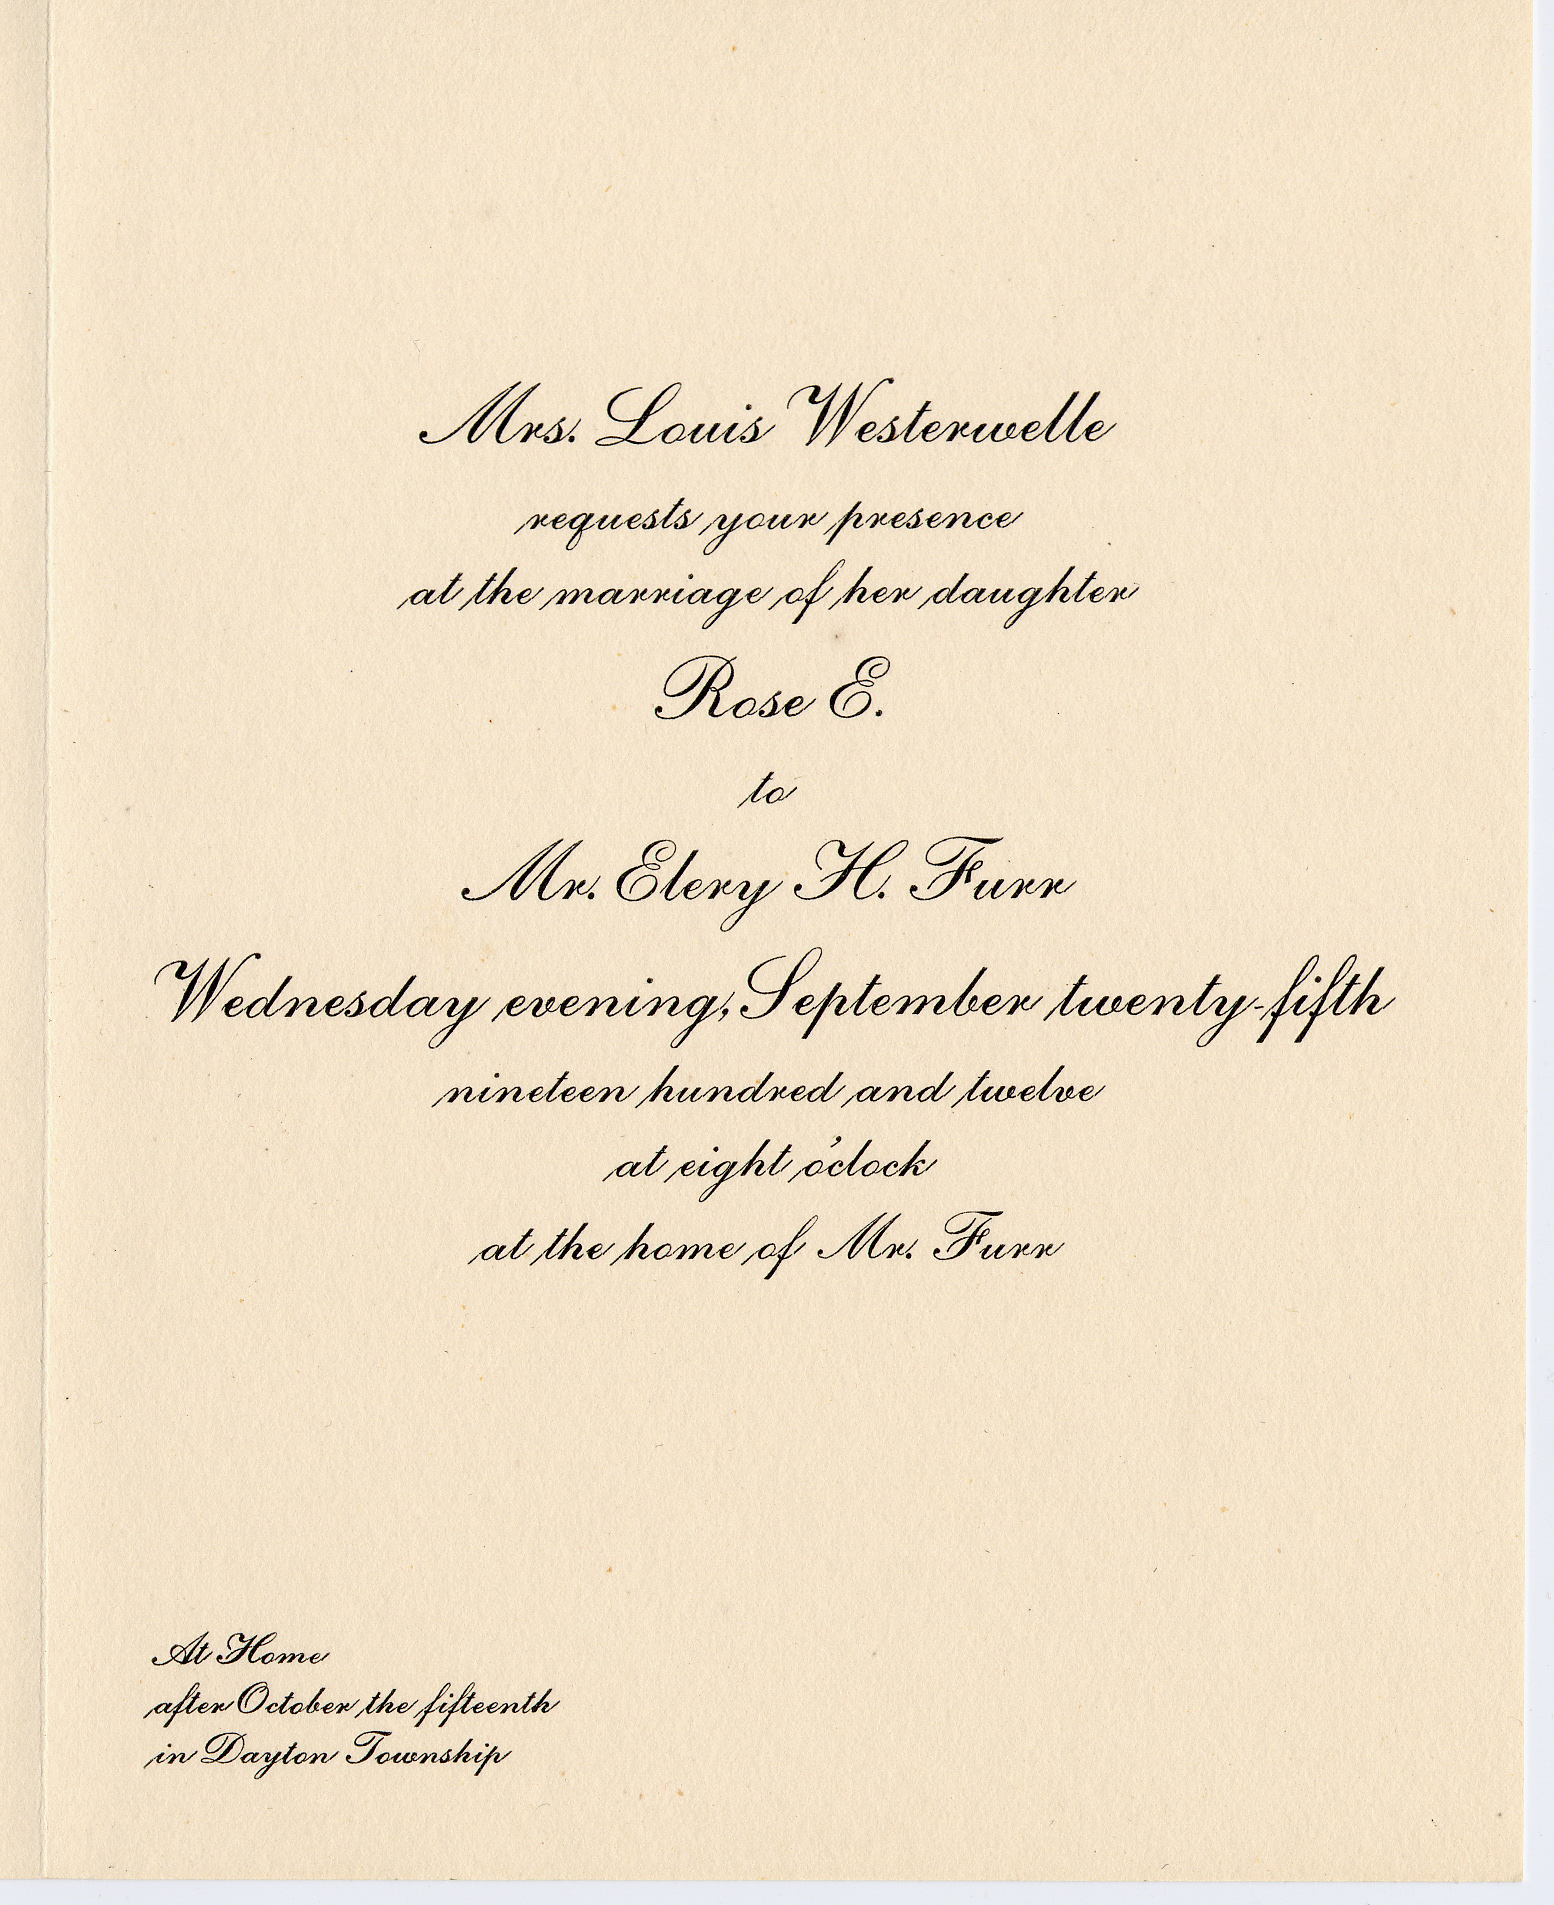 Mrs. Louis Westerwelle
requests your presence
at the marriage of her daughter
Rose E.
to
Mr. Elery H. Furr
Wednesday evening, September twenty-fifth
nineteen hundred and twelve
at eight o'clock
at the home of Mr. Furr
At Home
after October the fifteenth
in Dayton Township